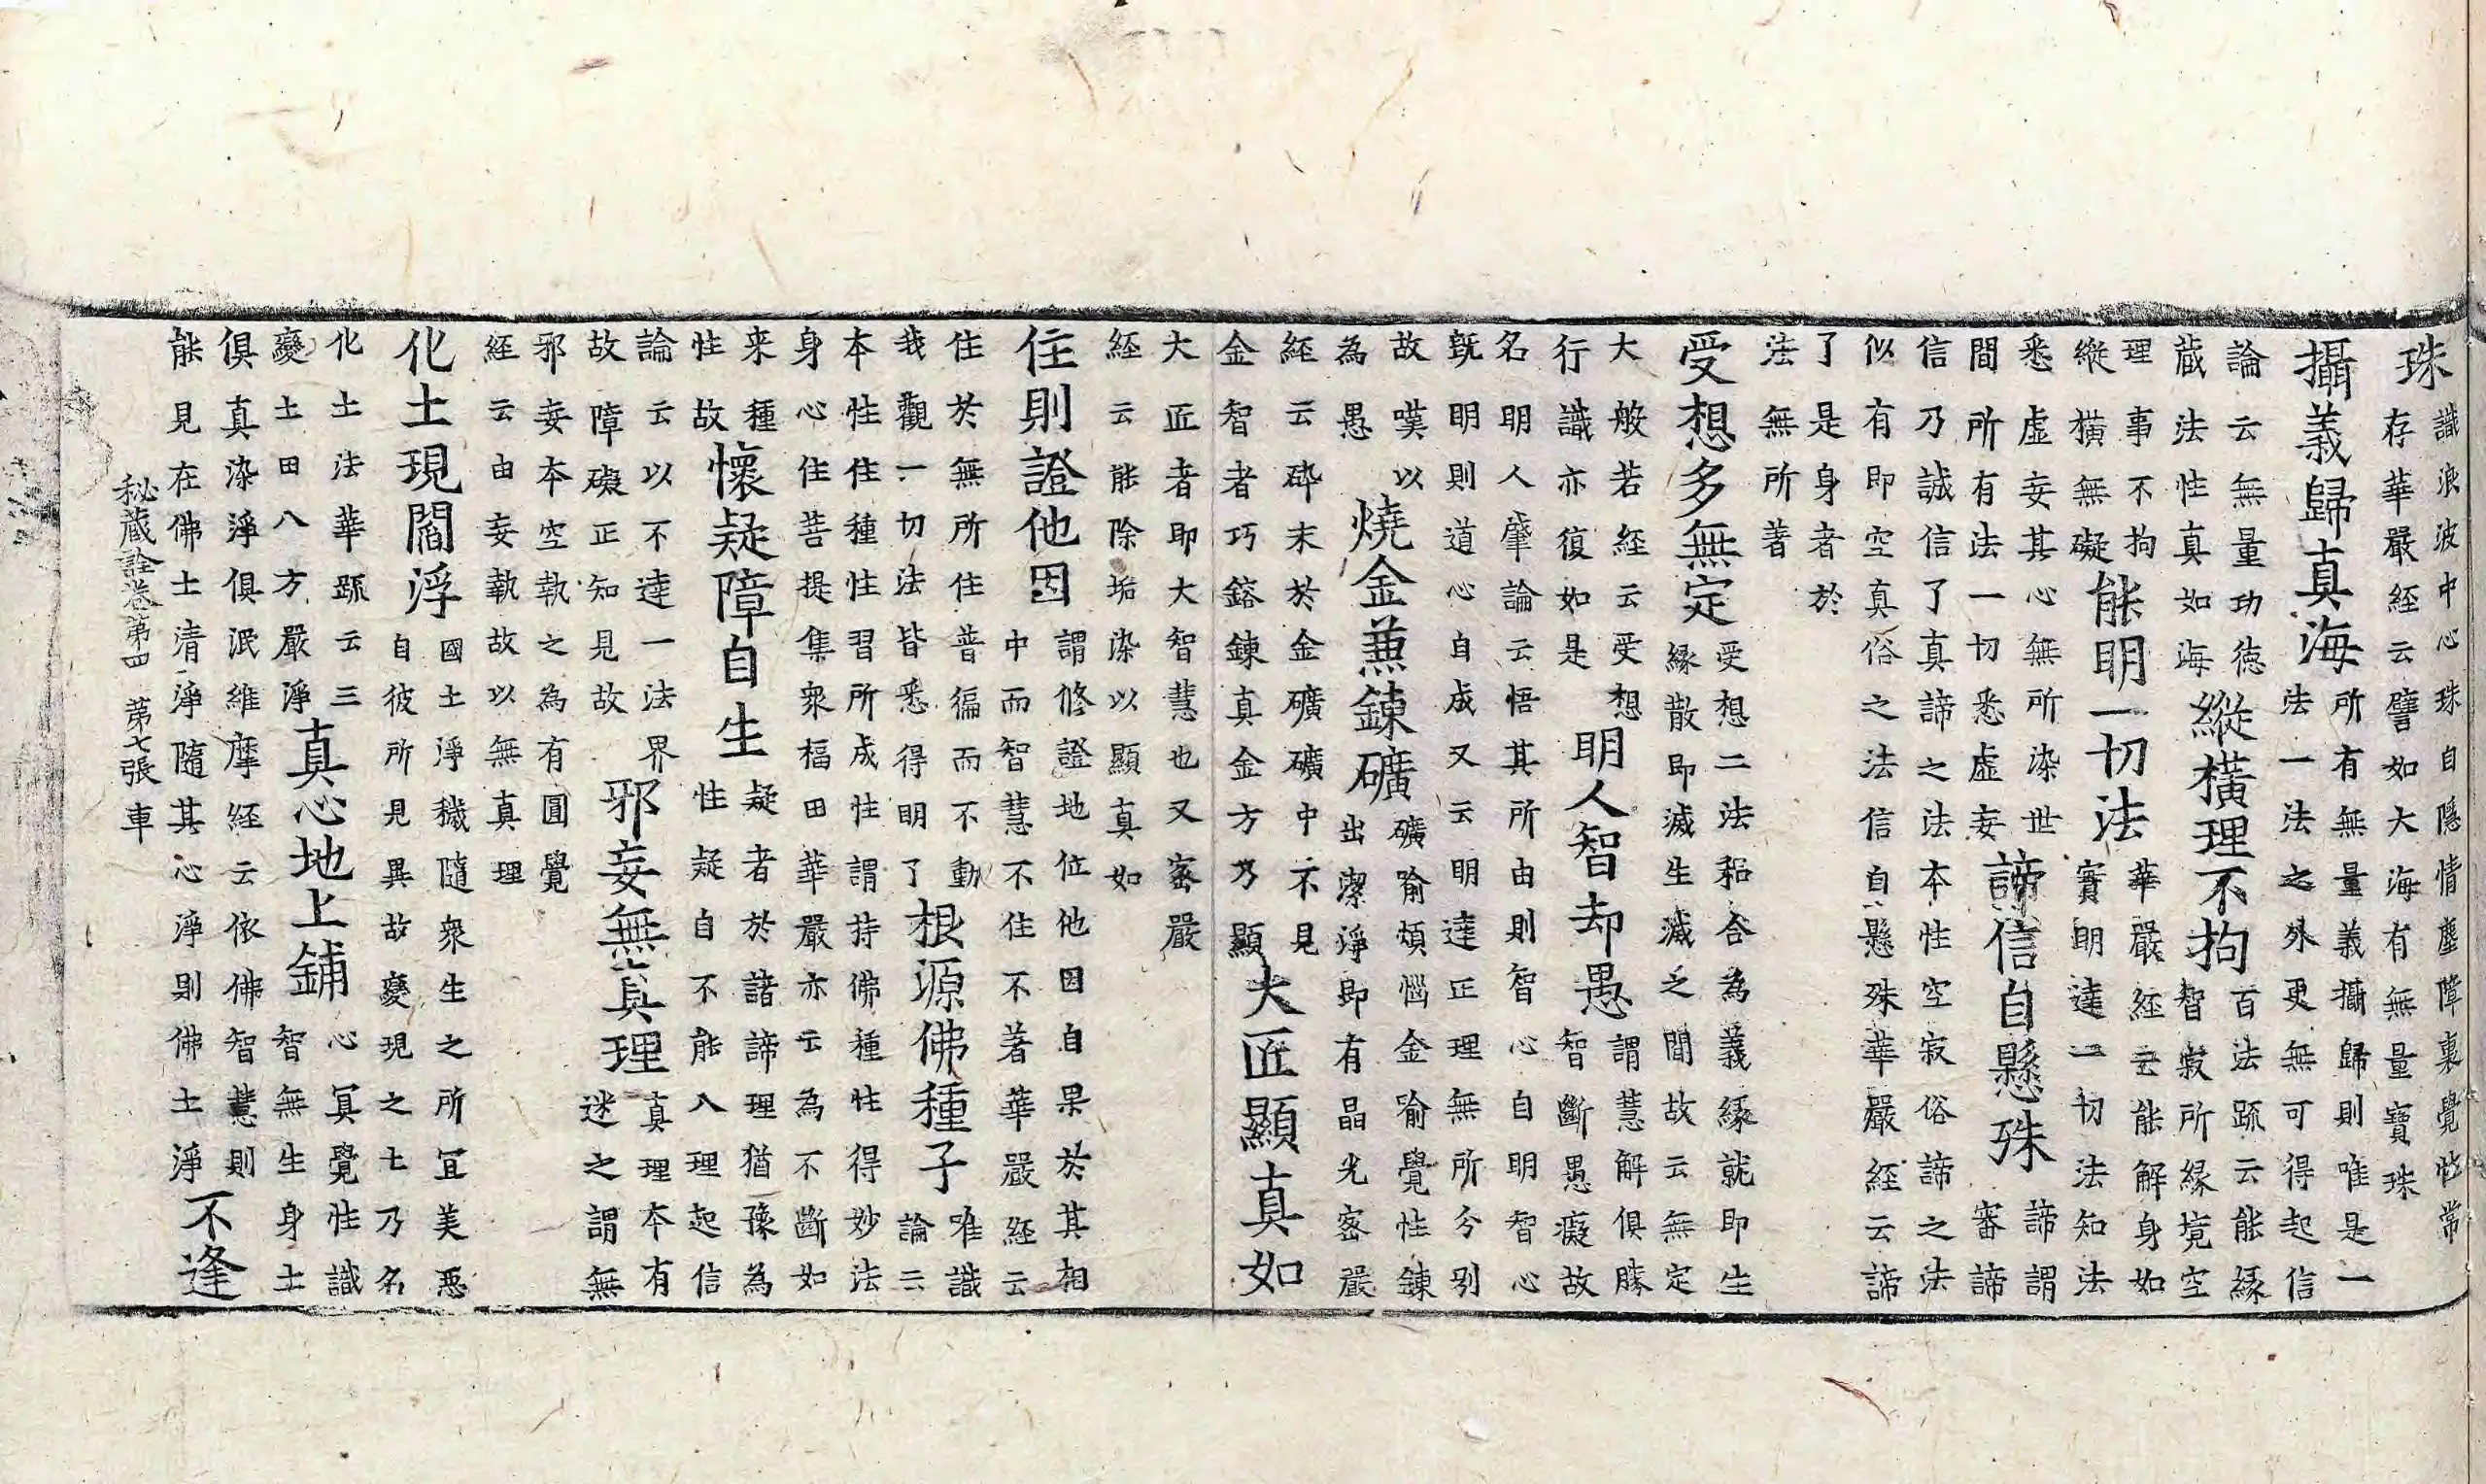 珠
識浪波中心珠自隱情塵障裏覺性常
存華嚴經云譬如大海有無量寶珠
攝義歸真海
所有無量義攝歸則唯是一
法一法之外更無可得起信
論云無量功德
藏法性真如海
縱橫理不拘
百法疏云能緣
智寂所緣境空
理事不拘
縱橫無礙
能明一切法
華嚴經云能解身如
實明達一切法知法
悉虛妄其心無所染世
間所有法一切悉虛妄
諦信自懸殊
諦謂
審諦
信乃誠信了真諦之法本性空寂俗諦之法
似有即空真俗之法信自懸殊華嚴經云諦
了是身者於
法無所著
受想多無定
受想二法和合為義緣就即生
緣散即滅生滅之間故云無定
大般若經云受想
行識亦復如是
明人智却愚
謂慧解俱勝
智斷愚癡故
名明人肇論云悟其所由則智心自明智心
既明明則道心自成又云明達正理無所分別
故嘆以
為愚
燒金兼鍊礦
礦喻煩惱金喻覺性鍊
出潔淨即有晶光密嚴
經云碎末於金礦礦中不見
金智者巧鎔鍊真金方乃顯
大匠顯真如
大匠者即大智慧也又密嚴
經云能除垢染以顯真如
住則證他因
謂修證地位他因自果於其相
中而智慧不住不著華嚴經云
住於無所住普徧而不動
我觀一切法皆悉得明了
根源佛種子
唯識
論云
本性住種性習所成性謂持佛種性得妙法
身心住菩提集眾福田華嚴亦云為不斷如
来種
性故
懷疑障自生
疑者於諸諦理猶豫為
性疑自不能入理起信
論云以不達一法界
故障礙正知見故
邪妄無真理
真理本有
迷之謂無
邪妄本空執之為有圓覺
經云由妄執故以無真理
化土現閻浮
國土淨穢隨眾生之所宜美惡
自彼所見異故變現之土乃名
化土法華疏云三
變土田八方嚴淨
真心地上鋪
心冥覺性識
智無生身土
俱真染淨俱泯維摩經云依佛智慧則
能見在佛土清淨隨其心淨則佛土淨
不逢
秘藏詮卷第四 第七張 車